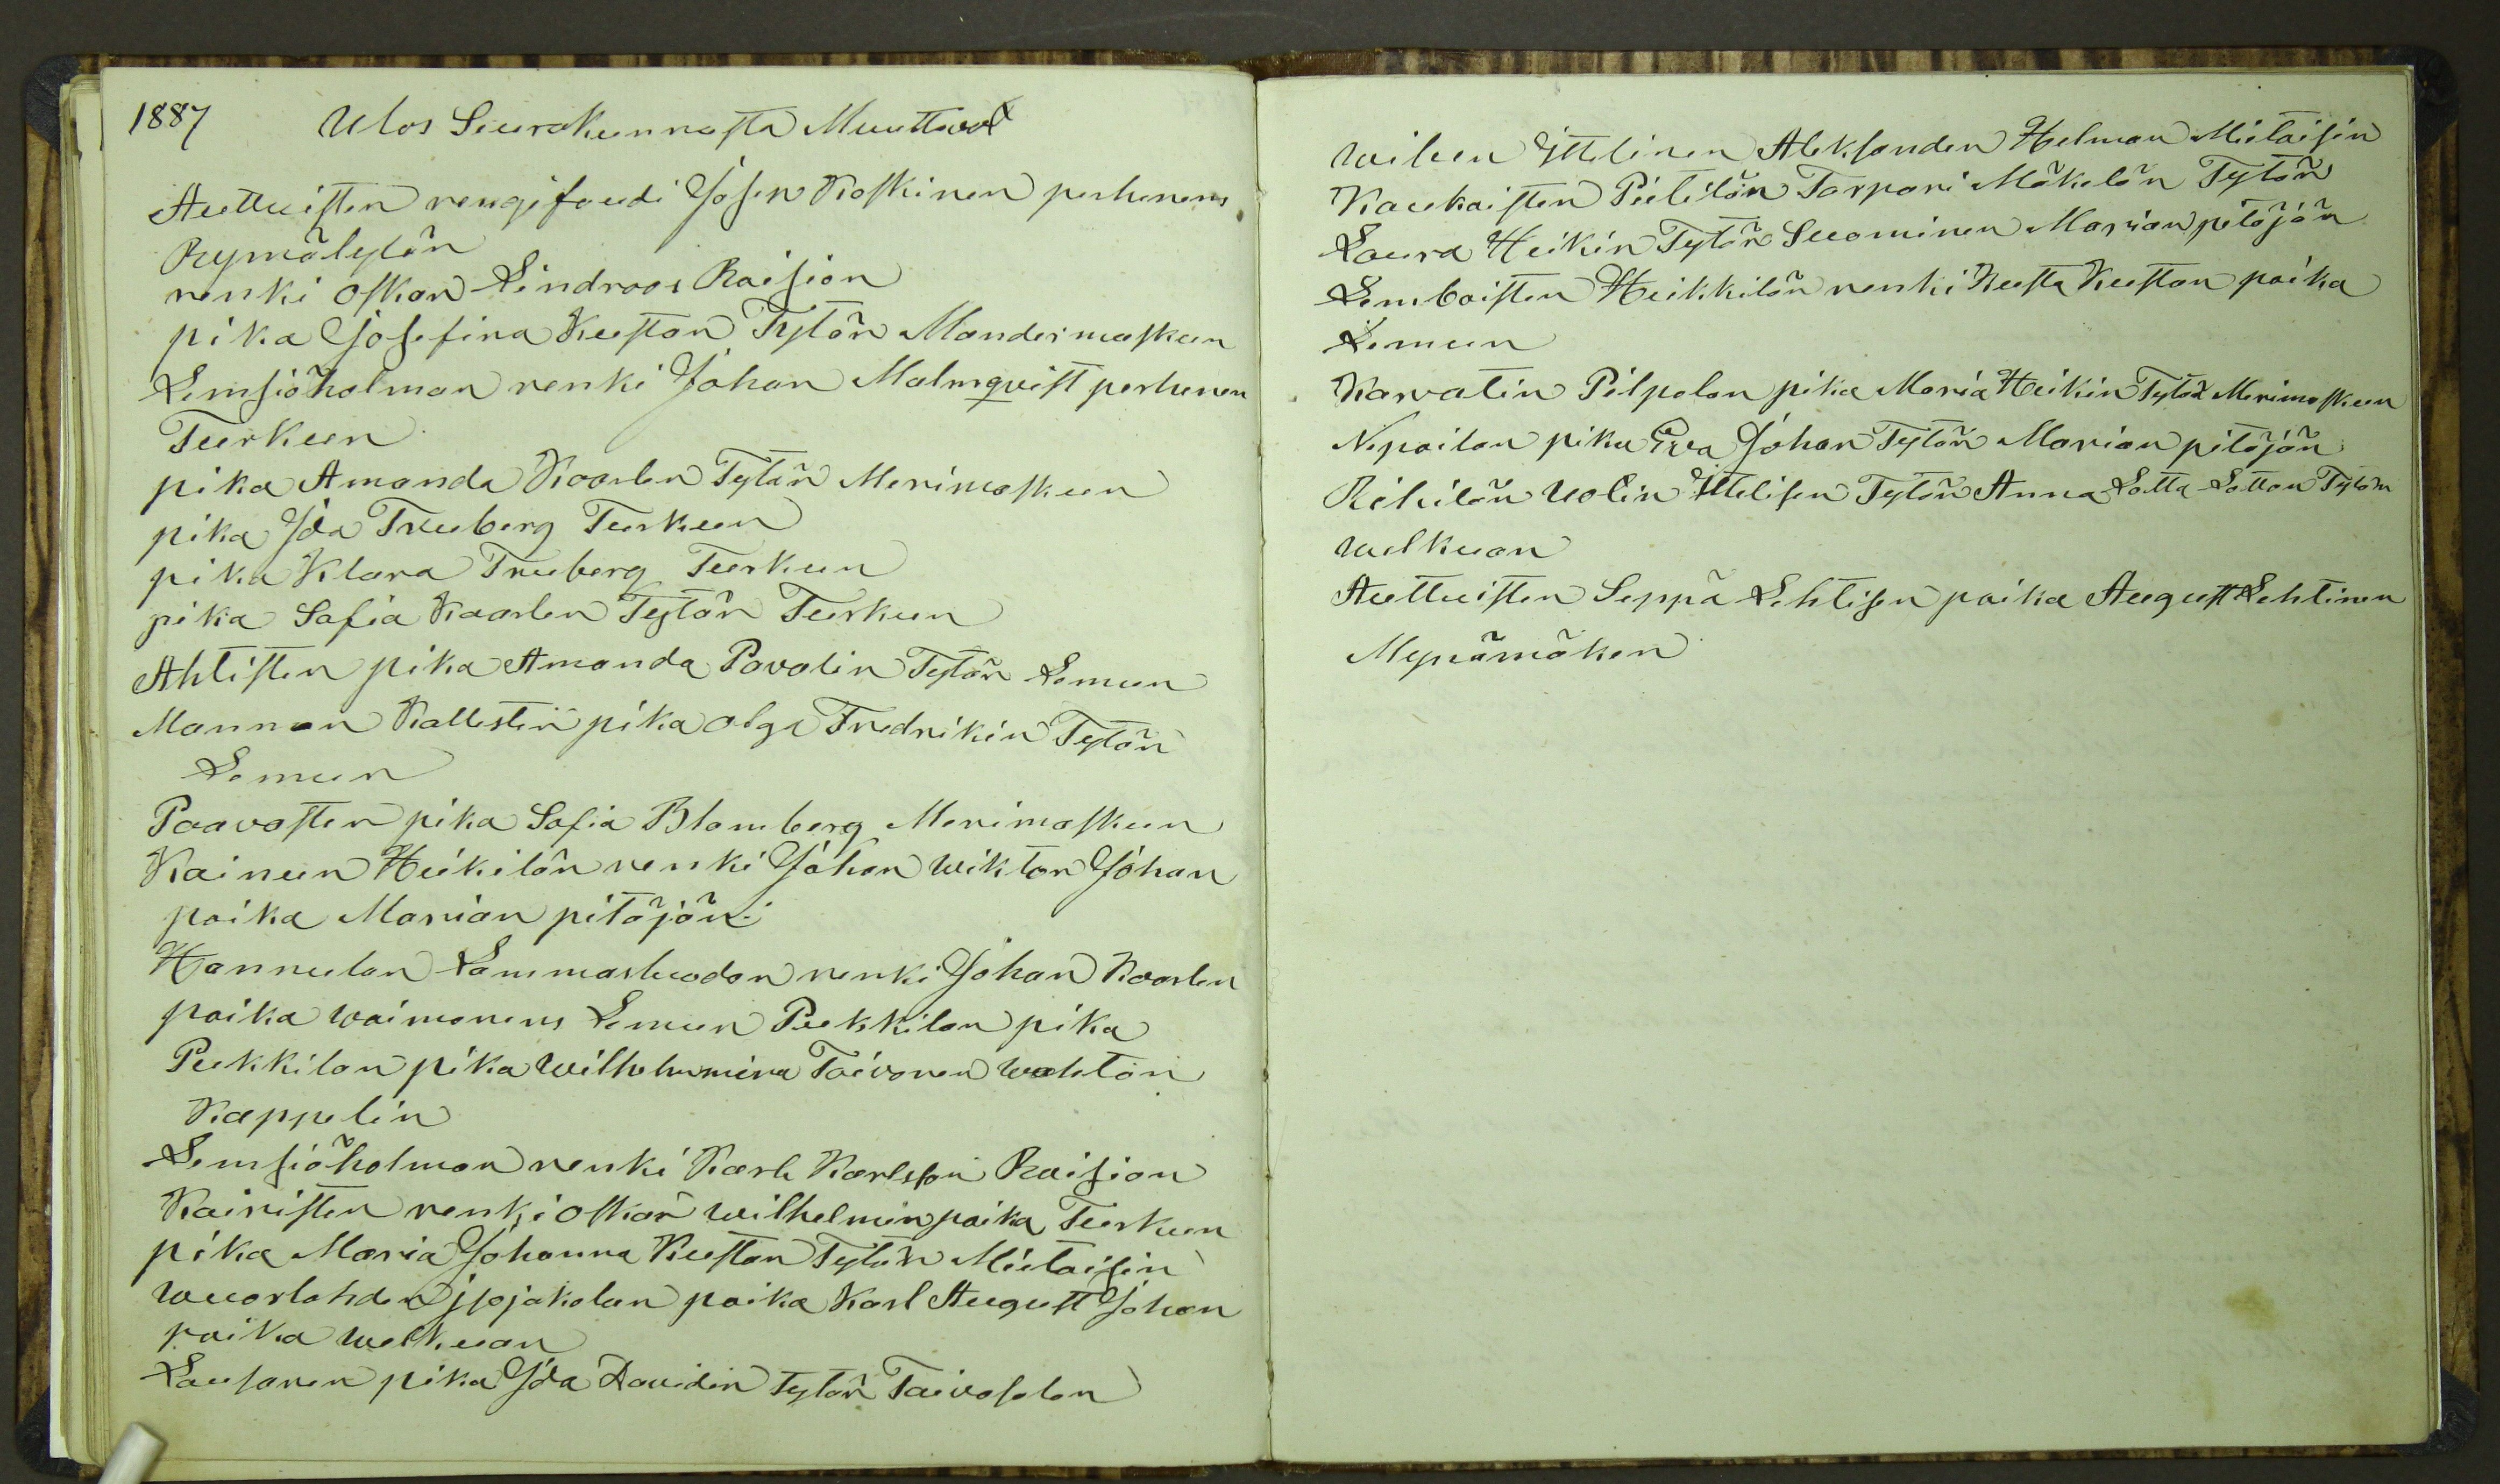 1887 Ulos Seurakunnasta Muuttavat
Auttuisten rengifoudi Josen Koskinen perhenens
Rymätylän
renki Oskar Lindroos Raision
pika Josefina Kustan Tytär Mandermaskun
Lemsiöholman renki Johan Malmqvist perhenen
Turkuun
pika Amanda Kaarlen Tytär Merimaskuun
pika Jda Truberg Turkuun
pika Klara Truberg Turkuun
pika Safia Kaarlen Tytär Turkuun
Ahtisten pika Amanda Pavolin Tytär Lemuun
Mannan Kallestin pika Olga Fredrikin Tytär
Lemuun
Paavosten pika Safia Blomberg Merimaskuun
Kainun Heikilän renki Johan Wiktor Johan
poika Marian pitäjän
Hannulan Lammasluodon renki Johan Kaarlen
poika waimonens Lemun Pukkilan pika
Pukkilan pika Wilhelmina Toivonen Wahton
Kappelin
Lemsiöholman renki Karle Karlsson Raision
Kairisten renki Oskar Wilhelmin poika Turkuun
pika Maria Johanna Kustan Tytär Mietaisin
Wuorlahden jsojakolan poika Karl August Johan
poika Welkuan
Lausanen pika Jda Davidin Tytär Taivasalon
Wiluen Jttelinen Aleksander Helman Mietaisin
Kaukaisten Pietilän Torpari Mäkelän Tytär
Laura Heikin Tytär Suominen Marian pitäjän
Lemboisten Heikkilän renki Kusta Kustan poika
Lemuun
Karvatin Pilpolan pika Maria Heikin Tytär Merimaskuun
Nepoilan pika Eva Johan Tytär Marian pitäjän
Rihilän Uolin Jttelisen Tytär Anna Lotta Lottan Tytär
Welkuan
Auttuisten Seppä Lehtisen poika August Lehtinen
Mynämäken